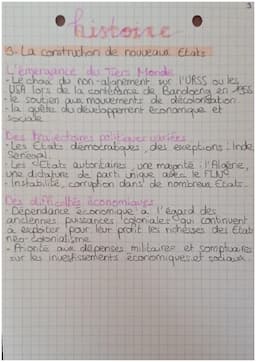 3
histoire
3. La construction de nouveaux Etats
L'émergence du Tiers Monde
- Le choix du non-alignement sur l'URSS ou les
USA lors de la conférence de Bandoeng en 1955
- le soutien aux mouvements de décolonisation.
- la quête du développement économique et
sociale
Des trajectoires politiques variées
- Les Etats démocratiques, des exceptions : Inde,
Sénégal.
- Les Etats autoritaires, une majorité : l'Algérie,
une dictature de parti unique avec le FLN
- Instabilité, corruption dans de nombreux Etats.
Des difficultés économiques
- Dépendance économique à l'égard des
anciennes puissances coloniales qui continuent
à exploiter pour leur profit les richesses des Etats
néo-colonialisme
- Priorité aux dépenses militaires et somptuaires
sur les investissements économiques et sociaux.